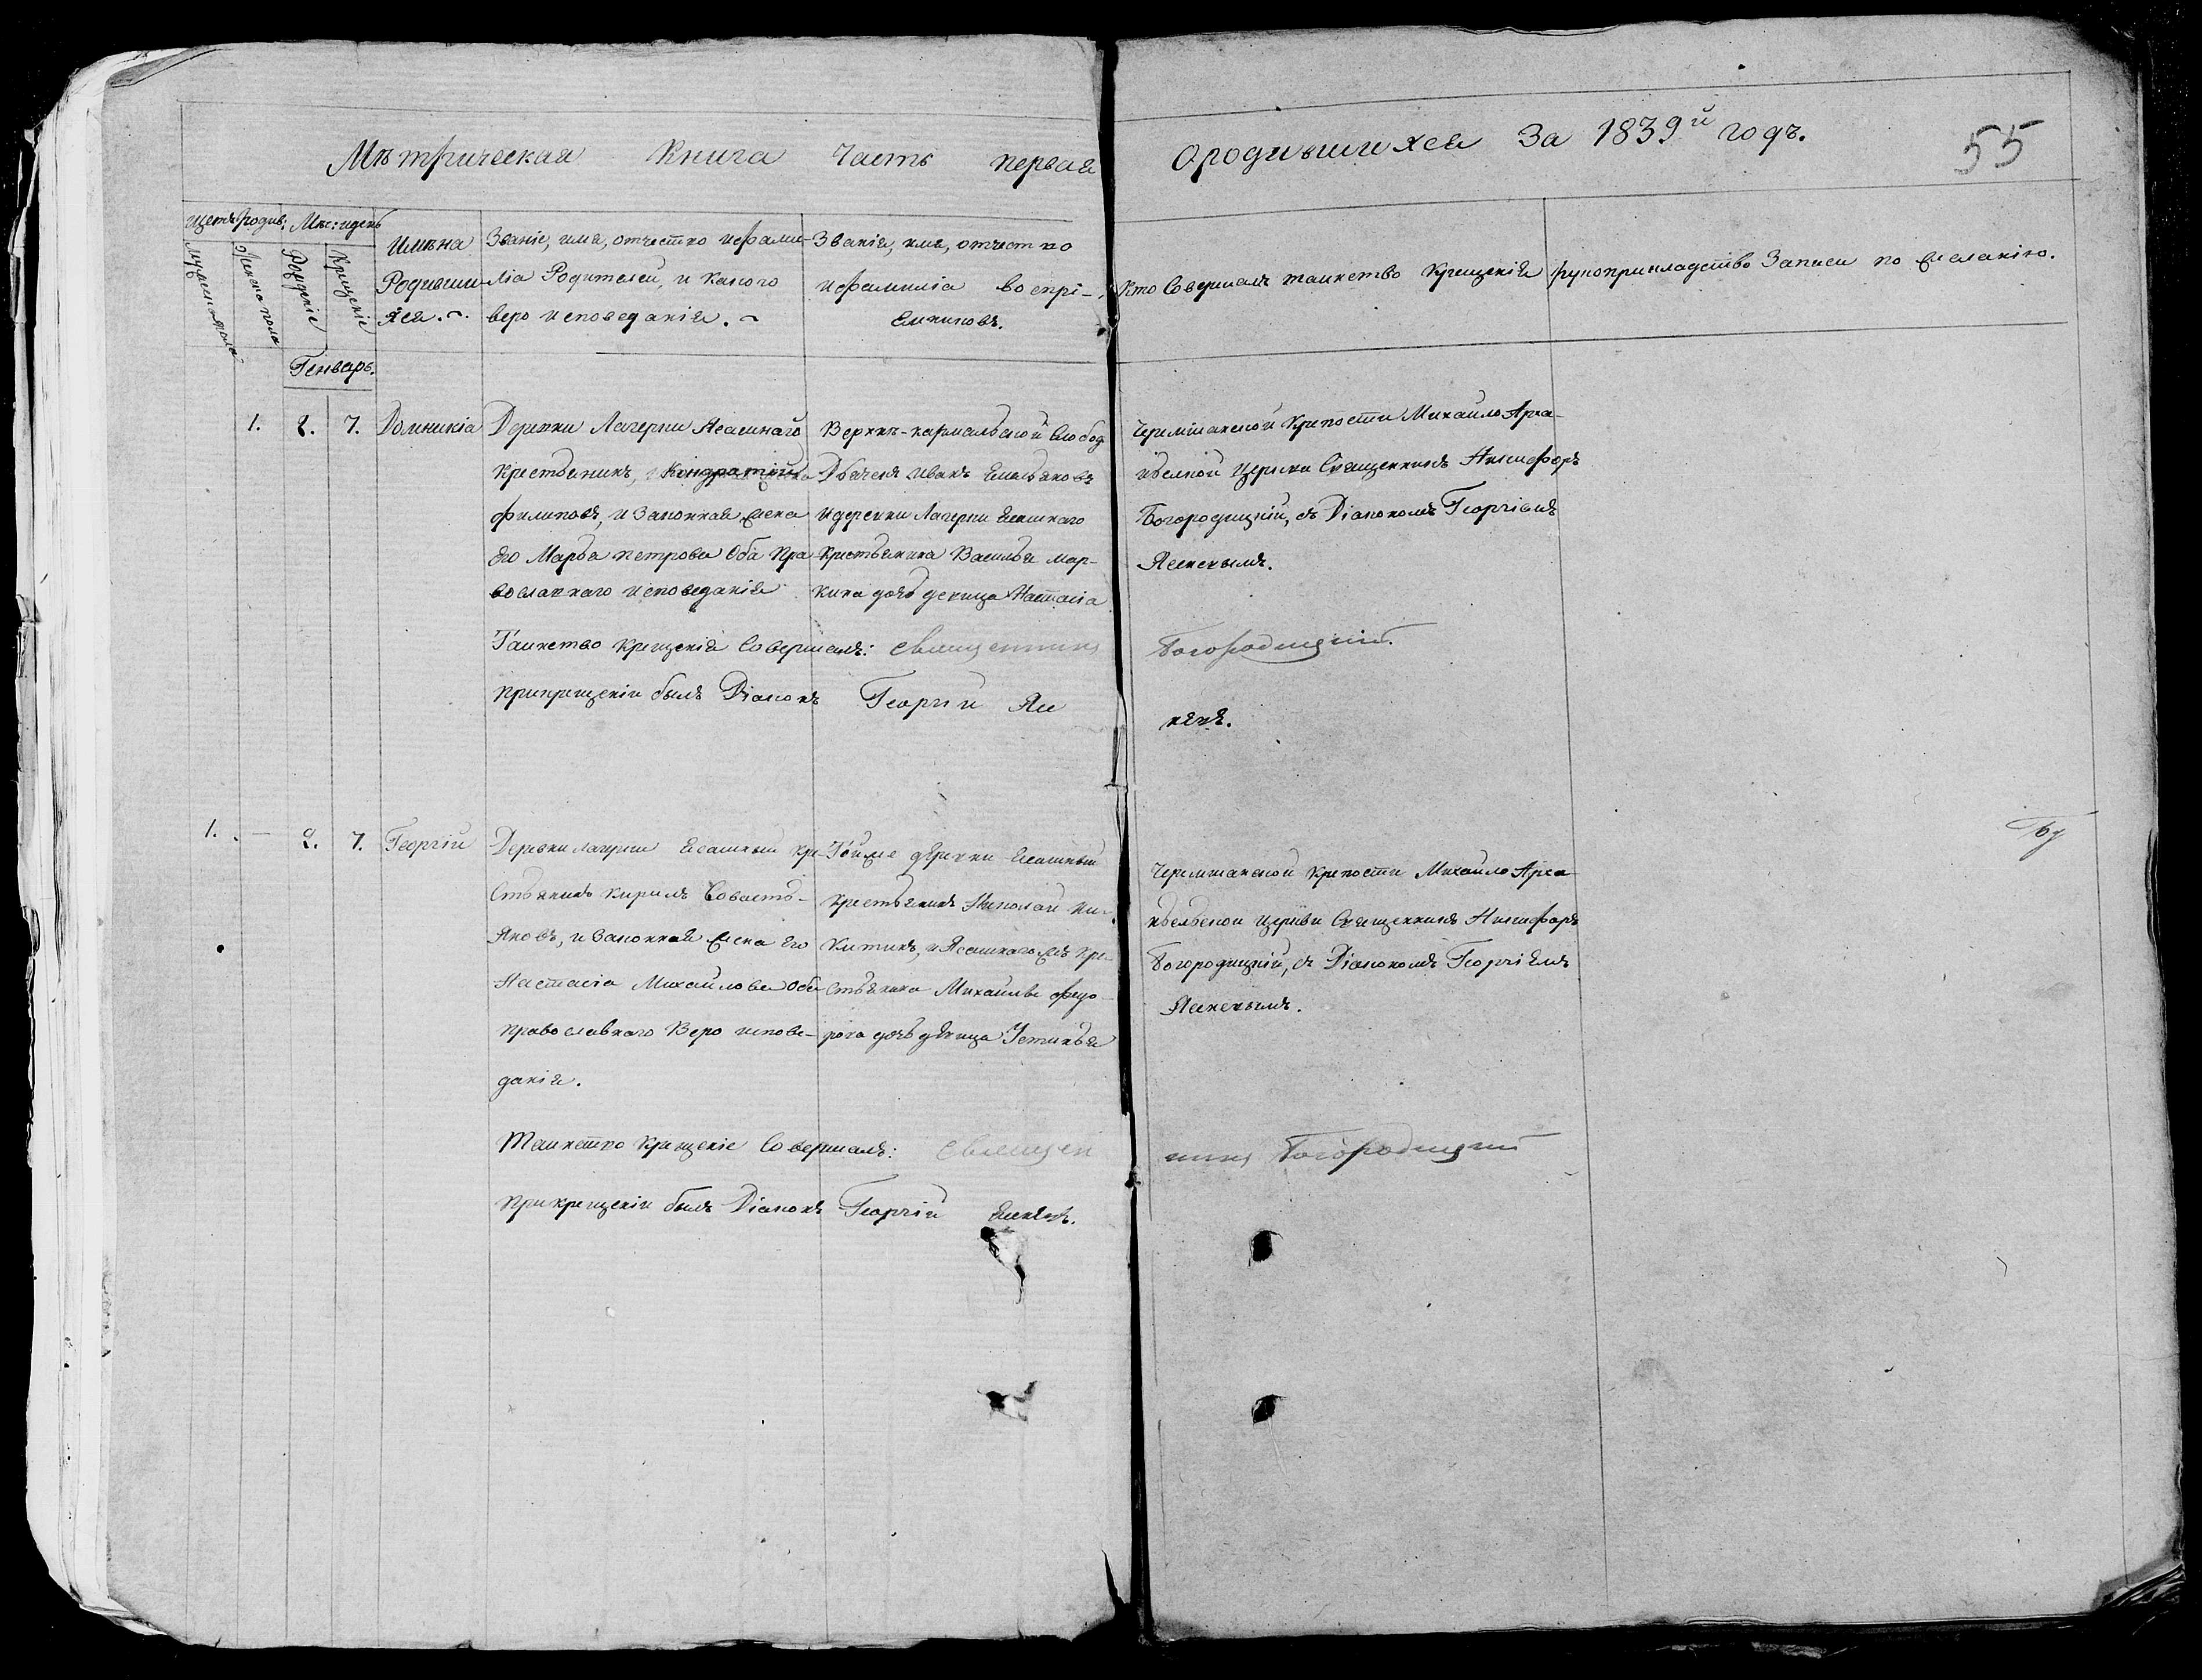 Мѣтрическая Книга Часть первая
Ородившихся За 1839й годъ.
55
Щетъ родив: Мѣс: идень
Мужеска пола
Женска пола
Рождение
Крещение
Имѣна
Родивши
хся.
Званіе, имя, отчество ифами-
ліа Родителей, и какого
веро исповеданія.
Званія, имя, отчество
ифамиліа воспрі-
емниковъ.
Кто Совершалъ таинство Крещенія
рукоприкладство Записи по желанію.
Генварь.
1. 2. 7. Домникіа
Деревни Лагерки Ясашнаго
крестьянинъ,
филиповъ, и Законная жена
его Марѳа петрова Оба пра
вославнаго исповеданія
Верхне-кармальской Слобод
Дьячекъ Иванъ Емельяновъ
идеревни Лагерки Ясашнаго
Крестьянина Василья мар-
кика дочь девица Настасіа
Черемшанской Крепости Михайло Арха-
нгельской Церкви Священникъ Никифоръ
Богородицкій, съ Діакономъ Георгіемъ
Таинство крещенія Совершалъ: священникъ
Богородицкій.
прикрещеніи былъ Діаконъ Георгій
1. — 2. 7. Георгій
Деревни лагерки Ясашный кре-
стьянинъ Кирилъ Севасть-
яновъ, и Законная жена его
Настасіа Михайлова Оба
православнаго Веро испове-
данія.
Тойже деревни Ясашный
крестьянинъ Николай Ни-
китинъ, и Ясашнагожъ кре-
стьянина Михайлы федо-
рова дочь девица Устинья
Черемшанской крепости Михайло Арха-
нгельской церкви Священникъ Никифоръ
Богородицкій, съ Діакономъ Георгіемъ
Таинство Крещеніе Совершалъ: священ
никъ Богородицкий
прикрещеніи былъ Діаконъ Георгій